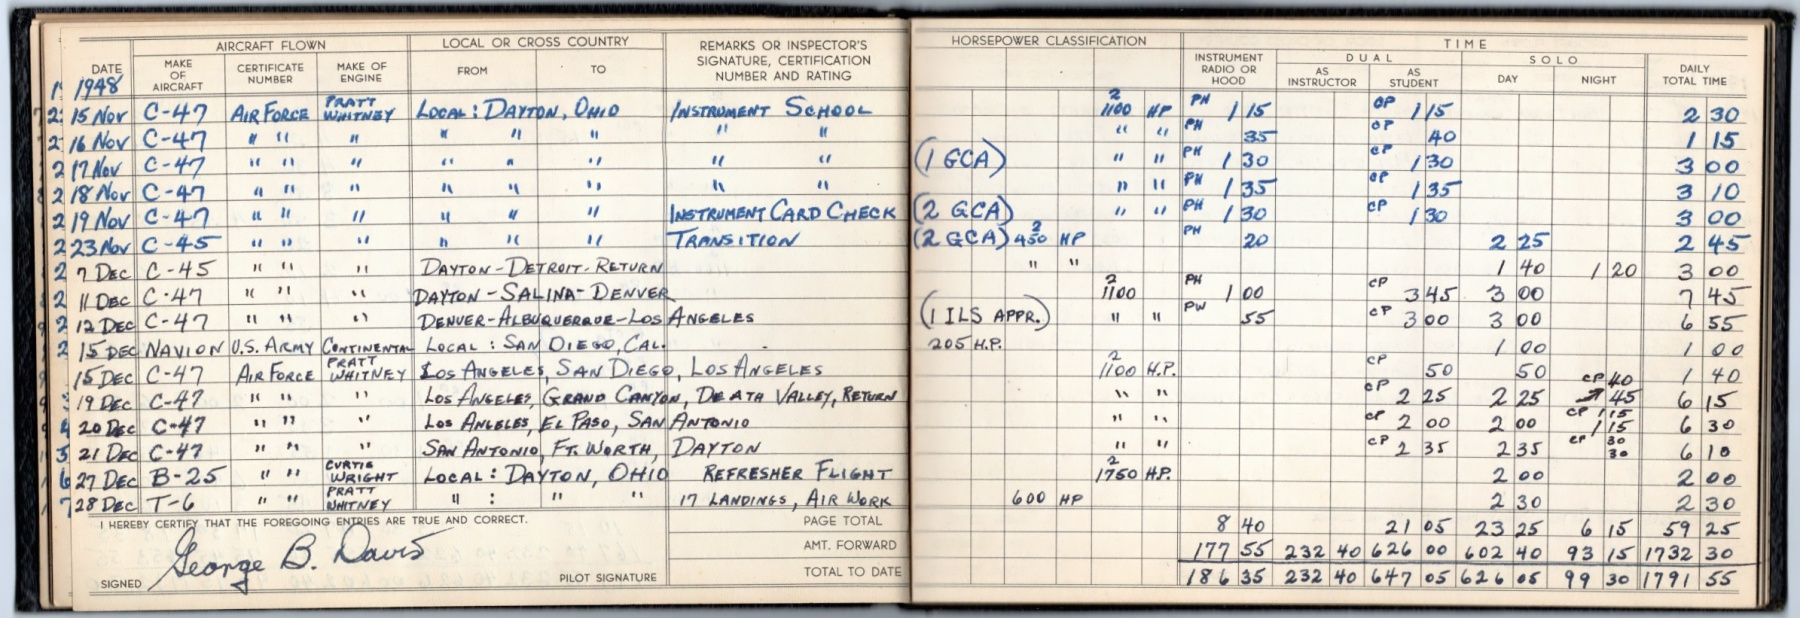 AIRCRAFT FLOWN LOCAL OR CROSS COUNTRY REMARKS OR INSPECTOR'S SIGNATURE, CERTIFICATION NUMBER AND RATING HORSEPOWER CLASSIFICATION TIME
DATE MAKE OF AIRCRAFT CERTIFICATE NUMBER MAKE OF ENGINE FROM TO INSTRUMENT RADIO OR HOOD DUAL AS INSTRUCTOR AS STUDENT SOLO DAY NIGHT DAILY TOTAL TIME
1948
15 Nov C-47 AIR FORCE PRATT WHITNEY LOCAL: DAYTON, OHIO INSTRUMENT SCHOOL 2 1100 HP PH 1 15 CP 1 15 2 30
16 Nov C-47 " " " " " " " " " " PH 35 CP 40 1 15
17 Nov C-47 " " " " " " " " (1 GCA) " " PH 1 30 CP 1 30 3 00
18 Nov C-47 " " " " " " " " " " PH 1 35 CP 1 35 3 10
19 Nov C-47 " " " " " " INSTRUMENT CARD CHECK (2 GCA) " " PH 1 30 CP 1 30 3 00
23 Nov C-45 " " " " " " TRANSITION (2 GCA) 2 450 HP PH 20 2 25 2 45
7 DEC C-45 " " " DAYTON-DETROIT-RETURN " " 1 40 1 20 3 00
11 DEC C-47 " " " DAYTON-SALINA-DENVER 2 1100 PH 1 00 CP 3 45 3 00 7 45
12 DEC C-47 " " " DENVER-ALBUQUERQUE-LOS ANGELES (1 ILS APPR.) " " PW 55 CP 3 00 3 00 6 55
15 DEC NAVION U.S. ARMY CONTINENTAL LOCAL: SAN DIEGO, CAL. 205 H.P. 1 00 1 00
15 DEC C-47 AIR FORCE PRATT WHITNEY LOS ANGELES, SAN DIEGO, LOS ANGELES 2 1100 H.P. CP 50 50 1 40
19 DEC C-47 " " " LOS ANGELES, GRAND CANYON, DEATH VALLEY, RETURN " " CP 2 25 2 25 CP 40 45 6 15
20 DEC C-47 " " " LOS ANGELES, EL PASO, SAN ANTONIO " " CP 2 00 2 00 CP 1 15 1 15 6 30
21 DEC C-47 " " " SAN ANTONIO, FT. WORTH, DAYTON " " CP 2 35 2 35 CP 30 30 6 10
27 DEC B-25 " " CURTIS WRIGHT LOCAL: DAYTON, OHIO REFRESHER FLIGHT 2 1750 HP. 2 00 2 00
28 DEC T-6 " " PRATT WHITNEY " : " " 17 LANDINGS, AIR WORK 600 HP 2 30 2 30
I HEREBY CERTIFY THAT THE FOREGOING ENTRIES ARE TRUE AND CORRECT. PAGE TOTAL 8 40 21 05 23 25 6 15 59 25
AMT. FORWARD 177 55 232 40 626 00 602 40 93 15 1732 30
SIGNED George B. Davis PILOT SIGNATURE TOTAL TO DATE 186 35 232 40 647 05 626 05 99 30 1791 55